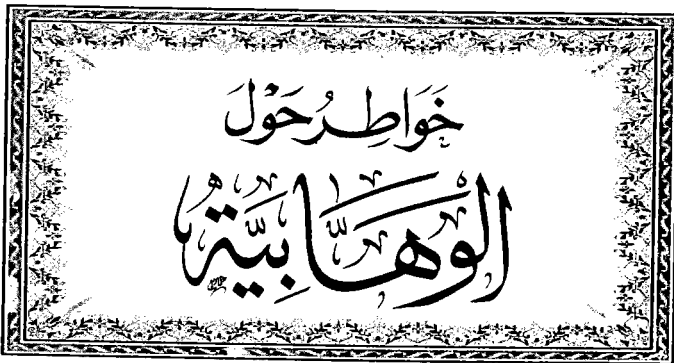 خَوَاطِرُ حَوْلَ
الْوَهَّابِيَّةِ